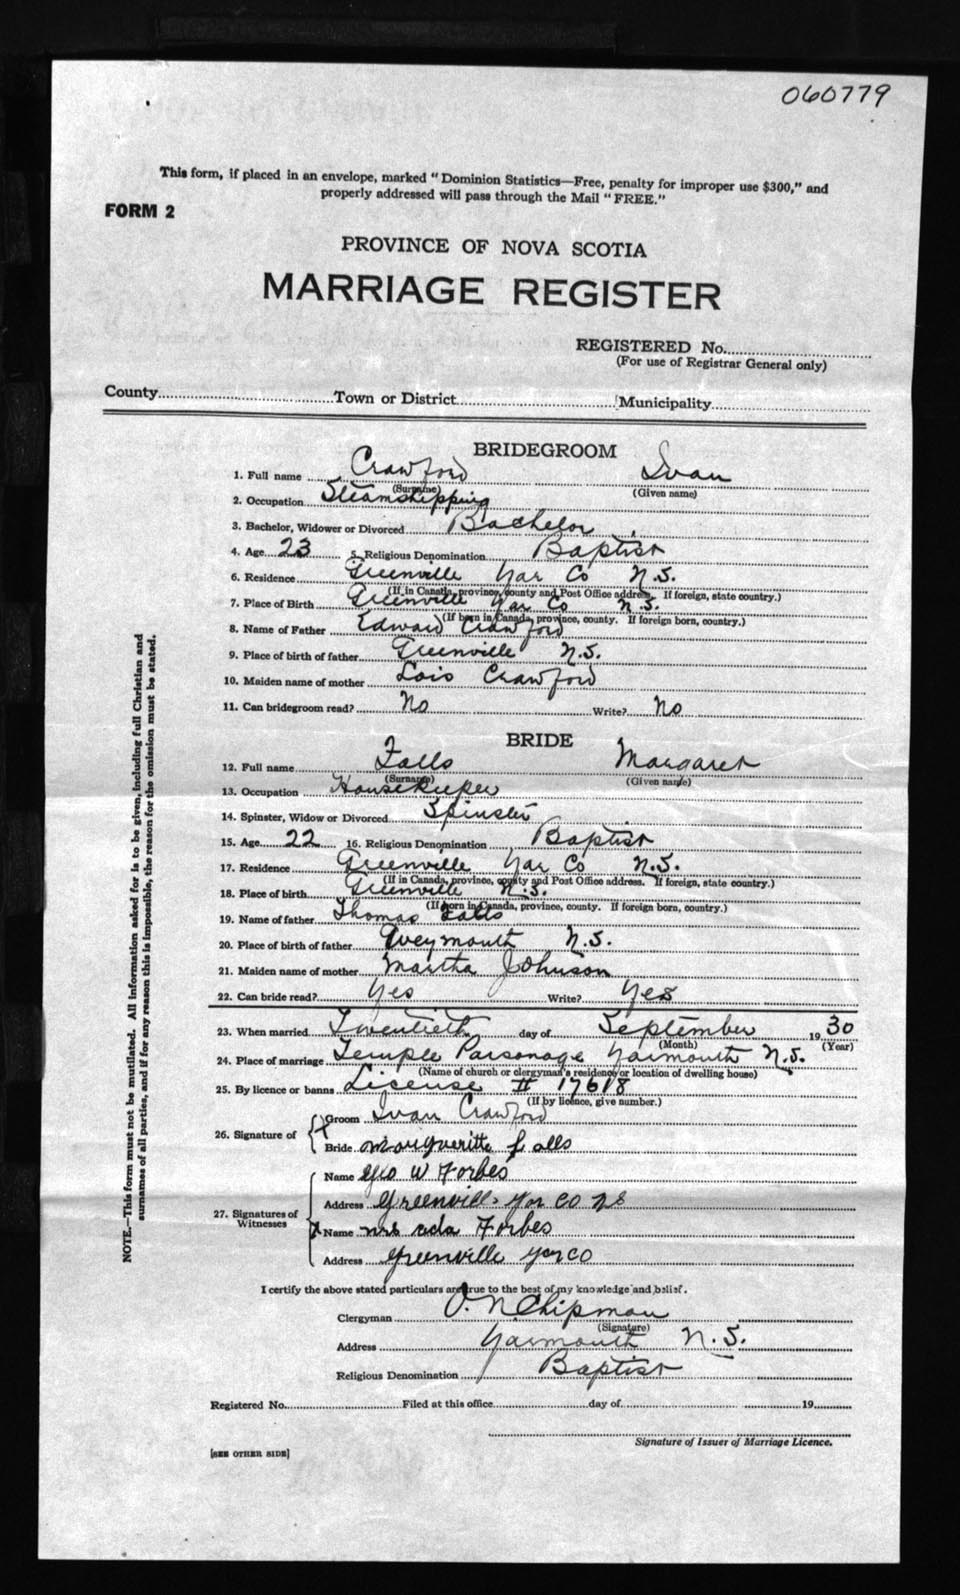 060779
This form, if placed in an envelope, marked "Dominion Statistics—Free, penalty for improper use $300," and
properly addressed will pass through the Mail "FREE."
FORM 2
PROVINCE OF NOVA SCOTIA
MARRIAGE REGISTER
REGISTERED No.
(For use of Registrar General only)
County Town or District Municipality
BRIDEGROOM
1. Full name Crawford Ivan
(Surname) (Given name)
2. Occupation Steamshipping
3. Bachelor, Widower or Divorced Bachelor
4. Age 23 5. Religious Denomination Baptist
6. Residence Greenville Yar Co N.S.
(If in Canada, province, county and Post Office address. If foreign, state country.)
7. Place of Birth Greenville Yar Co N.S.
(If born in Canada, province, county. If foreign born, country.)
8. Name of Father Edward Crawford
9. Place of birth of father Greenville N.S.
10. Maiden name of mother Lois Crawford
11. Can bridegroom read? No Write? No
BRIDE
12. Full name Falls Margaret
(Surname) (Given name)
13. Occupation Housekeeper
14. Spinster, Widow or Divorced Spinster
15. Age 22 16. Religious Denomination Baptist
17. Residence Greenville Yar Co N.S.
(If in Canada, province, county and Post Office address. If foreign, state country.)
18. Place of birth Greenville N.S.
(If born in Canada, province, county. If foreign born, country.)
19. Name of father Thomas Falls
20. Place of birth of father Weymouth N.S.
21. Maiden name of mother Martha Johnson
22. Can bride read? Yes Write? Yes
23. When married Twentieth day of September 1930
(Month) (Year)
24. Place of marriage Temple Parsonage Yarmouth N.S.
(Name of church or clergyman's residence or location of dwelling house)
25. By licence or banns License # 17618
(If by licence, give number.)
26. Signature of Groom Ivan Crawford
Bride Margueritte Falls
27. Signatures of Witnesses
Name Geo W Forbes
Address Greenville Yar Co NS
X Name Mrs Ada Forbes
Address Greenville Yar Co
I certify the above stated particulars are true to the best of my knowledge and belief.
Clergyman O. N. Chipman
(Signature)
Address Yarmouth N.S.
Religious Denomination Baptist
Registered No. Filed at this office day of 19
Signature of Issuer of Marriage Licence.
[SEE OTHER SIDE]
NOTE.—This form must not be mutilated. All information asked for is to be given, including full Christian and
surnames of all parties, and if for any reason this is impossible, the reason for the omission must be stated.